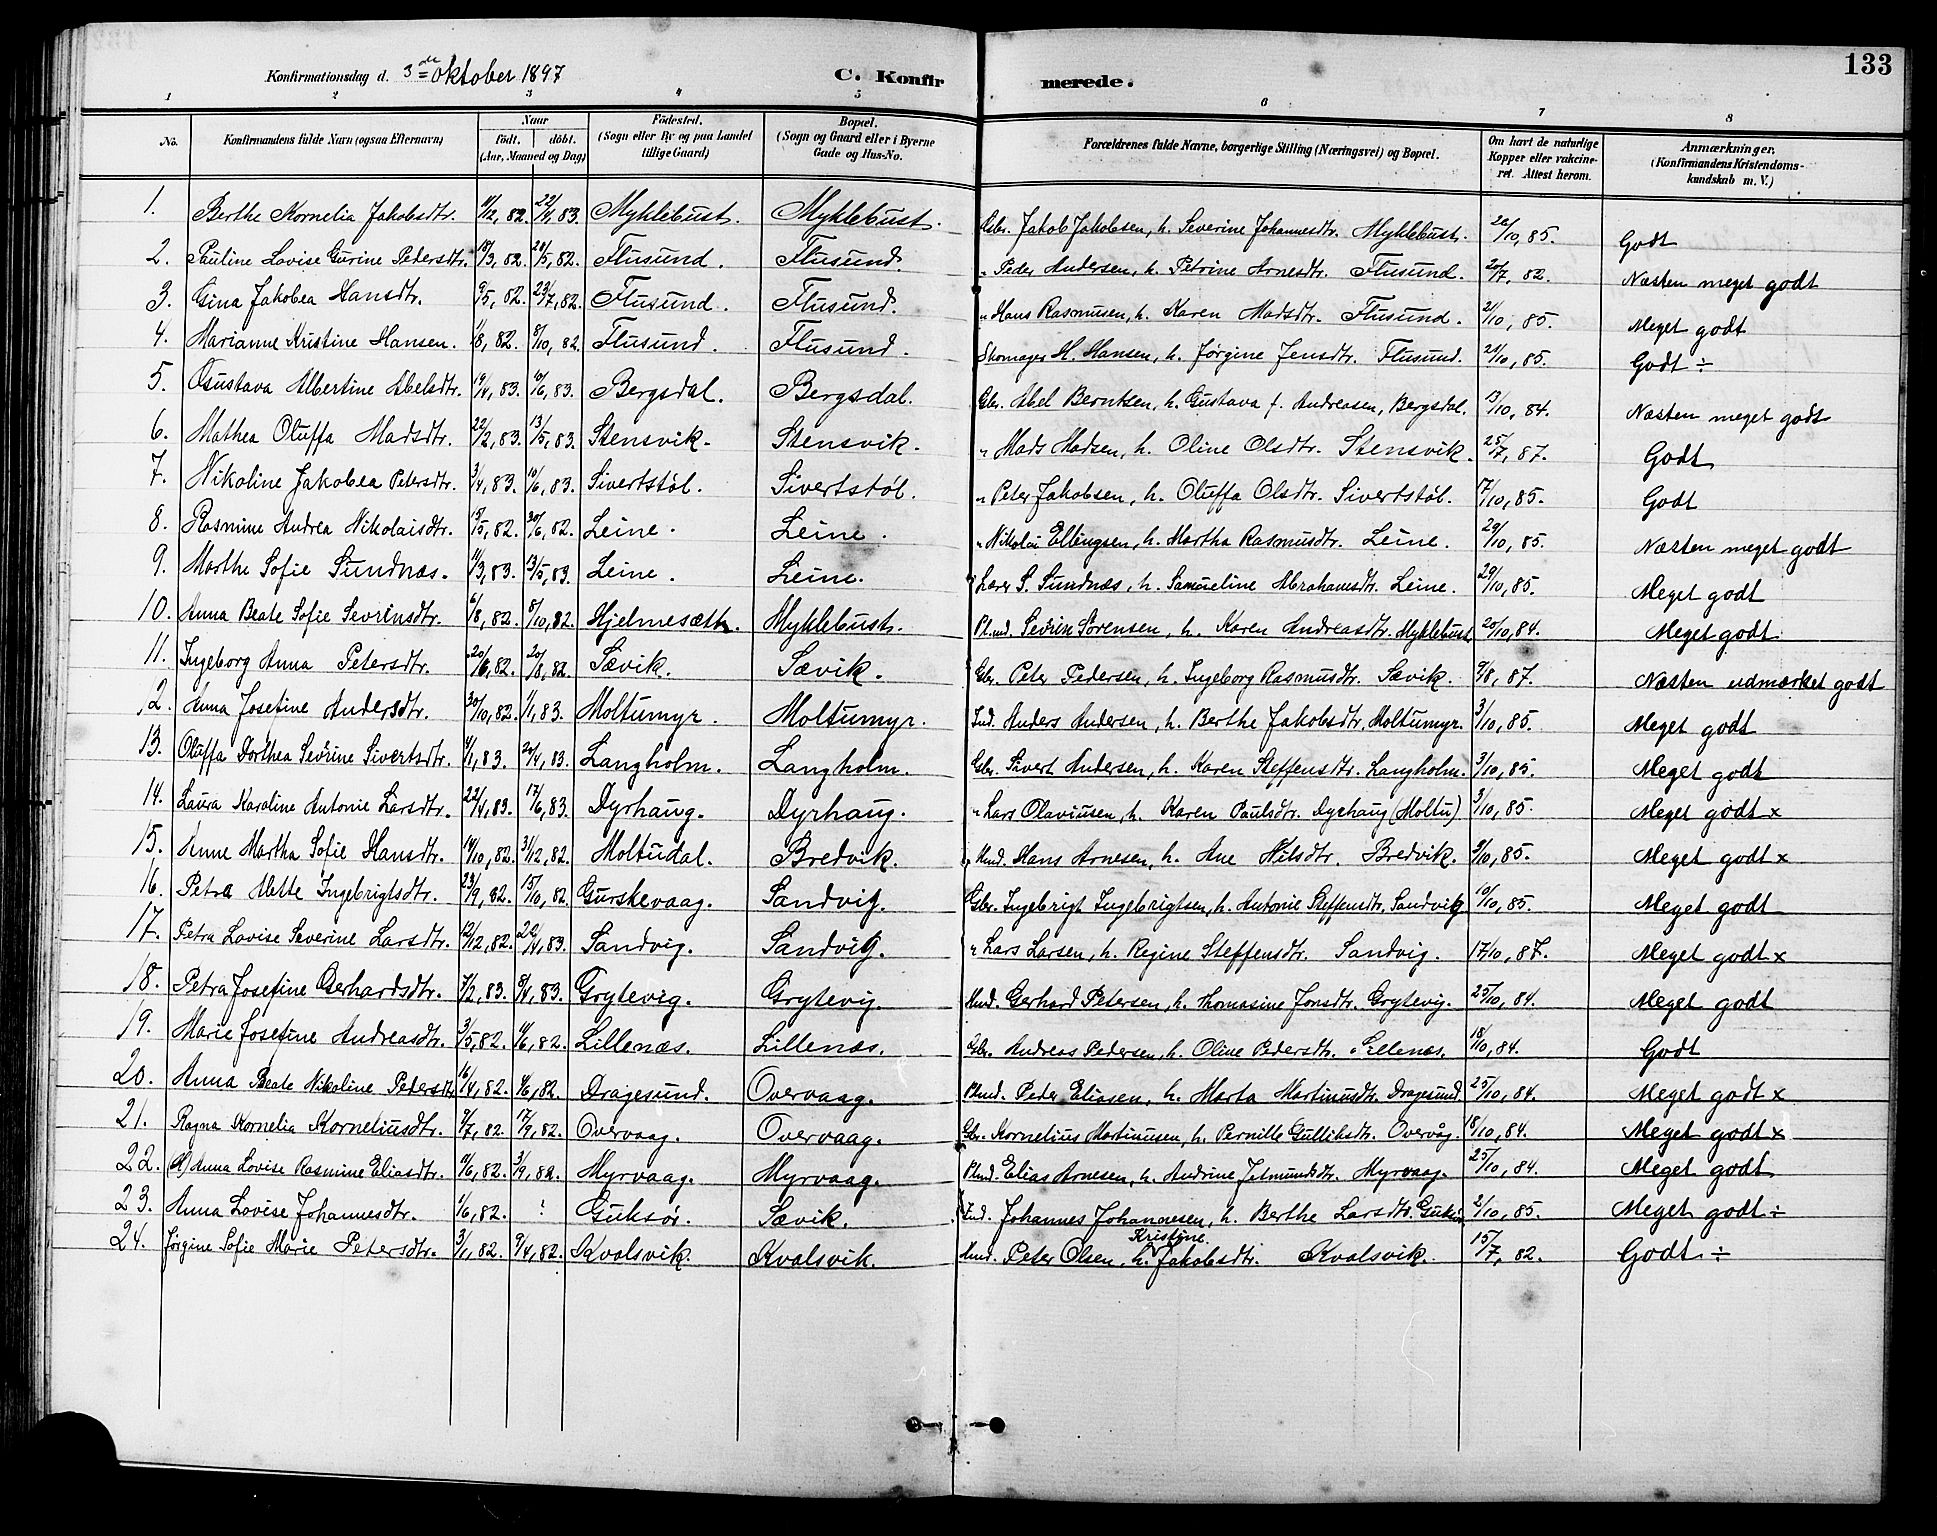 133
Konfirmationsdag d. 3die Oktober 1897 C. Konfirmerede.
1 2 3 4 5 6 7 8
No. Konfirmandens fulde Navn (ogsaa Efternavn) Naar födt. döbt. (Aar, Maaned og Dag) Födested. (Sogn eller By og paa Landet tillige Gaard) Bopæl. (Sogn og Gaard eller i Byerne Gade og Hus-No. Forældrenes fulde Navne, borgerlige Stilling (Næringsvei) og Bopæl. Om havt de naturlige Kopper eller vakcineret. Attest herom. Anmærkninger. (Konfirmandens Kristendomskundskab m. V.)
1. Berthe Kornelia Jakobsdtr. 11/12, 82. 22/4, 83. Myklebust. Myklebust. Gbr. Jakob Jakobsen, h. Severine Johannesdtr. Myklebust. 20/10, 85. Godt
2. Pauline Lovise Gurine Pedersdtr. 18/3, 82. 28/5, 82. Flusund. Flusund. " Peder Andersen, h. Petrine Arnesdtr. Flusund. 20/7, 82. Næsten meget godt
3. Gina Jakobea Hansdtr. 9/5, 82. 23/7, 82. Flusund. Flusund. " Hans Rasmusen, h. Karen Madsdtr. Flusund. 21/10, 85. Meget godt
4. Marianne Kristine Hansen. 1/8, 82. 8/10, 82. Flusund. Flusund. Skomager H. Hansen, h. Jørgine Jensdtr. Flusund. 21/10, 85. Godt ÷
5. Gustava Albertine Abelsdtr. 19/4, 83. 10/6, 83. Bergsdal. Bergsdal. Gbr. Abel Berntsen, h. Gustava f. Andreasen, Bergsdal. 13/10, 84. Næsten meget godt
6. Mathea Oluffa Madsdtr. 22/2, 83. 13/5, 83. Stensvik. Stensvik. " Mads Madsen, h. Oline Olsdtr. Stensvik. 25/7, 87. Godt
7. Nikoline Jakobea Petersdtr. 3/4, 83. 10/6, 83. Sivertstøl. Sivertstøl. " Peter Jakobsen, h. Oluffa Olsdtr. Sivertstøl. 17/10, 85. Godt
8. Rasmine Andrea Nikolaisdtr. 15/5, 82. 30/6, 82. Leine. Leine. " Nikolai Ellingsen, h. Martha Rasmusdtr. Leine. 29/10, 85. Næsten meget godt
9. Marthe Sofie Sundnæs. 11/3, 83. 13/5, 83. Leine. Leine. Lærer S. Sundnæs, h. Samueline Abrahamsdtr. Leine. 29/10, 85. Meget godt
10. Anna Beate Sofie Sevrinsdtr. 6/8, 82. 8/10, 82. Hjelmesætr. Myklebust. Pl.md. Sevrin Sørensen, h. Karen Andreasdtr. Myklebust 20/10, 84. Meget godt.
11. Ingeborg Anna Petersdtr. 20/6, 82. 20/8, 82. Sævik. Sævik. Gbr. Peter Pedersen, h. Ingeborg Rasmusdtr. Sævik. 9/8, 87. Næsten udmærket godt
12. Anna Josefine Andersdtr. 30/10, 82. 1/1, 83. Moltumyr. Moltumyr. Ind. Anders Andersen, h. Berthe Jakobsdtr. Moltumyr. 3/10, 85. Meget godt
13. Oluffa Dorthea Sevrine Sivertsdtr. 4/1, 83. 29/4, 83. Langholm. Langholm. Gbr. Sivert Andersen, h. Karen Steffensdtr. Langholm. 3/10, 85. Meget godt
14. Laura Karoline Antonie Larsdtr. 22/4, 83. 17/6, 83. Dyrhaug. Dyrhaug. " Lars Olaviusen, h. Karen Paulsdtr. Dyrhaug (Moltu) 3/10, 85. Meget godt x
15. Anne Martha Sofie Hansdtr. 14/10, 82. 31/12, 82. Moltudal. Bredvik. Hmd. Hans Arnesen, h. Ane Nilsdtr. Bredvik. 3/10, 85. Meget godt x
16. Petra Mette Ingebrigtsdtr. 23/9, 82. 15/10, 82. Gurskevaag. Sandvig. Gbr. Ingebrigt Ingebrigtsen, h. Antonie Steffensdtr. Sandvig 10/10, 85. Meget godt
17. Petra Lovise Severine Larsdtr. 12/12, 82. 22/4, 83. Sandvig. Sandvig. " Lars Larsen, h. Regine Steffensdtr. Sandvig. 17/10, 87. Meget godt x
18. Petra Josefine Gerhardsdtr. 7/2, 83. 8/4, 83. Grytevig. Grytevig. Hmd. Gerhard Petersen, h. Thomasine Jonsdtr. Grytevig. 25/10, 84. Meget godt
19. Marie Josefine Andreasdtr. 3/5, 82. 4/6, 82. Lillenæs. Lillenæs. Gbr. Andreas Pedersen, h. Oline Pedersdtr. Lillenæs. 18/10, 84. Godt
20. Anna Beate Nikoline Pedersdtr. 16/4, 82. 4/6, 82. Dragesund. Overvaag. Hmd. Peder Eliasen, h. Marta Martinusdtr. Dragesund 25/10, 84. Meget godt x
21. Ragna Kornelia Korneliusdtr. 7/7, 82. 17/9, 82. Overvaag. Overvaag. Gbr. Kornelius Martinusen, h. Pernille Gulliksdtr. Overvåg. 18/10, 84. Meget godt x
22. Anna Lovise Rasmine Eliasdtr. 11/6, 82. 3/9, 82. Myrvaag. Myrvaag. Hmd. Elias Arnesen, h. Andrine Jetmundsdtr. Myrvaag. 25/10, 84. Meget godt
23. Anna Lovise Johannesdtr. 1/6, 82. : Guksør. Sævik. Ind. Johannes Johannesen, h. Berthe Larsdtr. Guksør 2/10, 85. Meget godt ÷
24. Jørgine Sofie Marie Petersdtr. 3/1, 82. 9/4, 82. Kvalsvik. Kvalsvik. Hmd. Peter Olsen, h. Kristine Jakobsdtr. Kvalsvik. 15/7, 82. Godt ÷